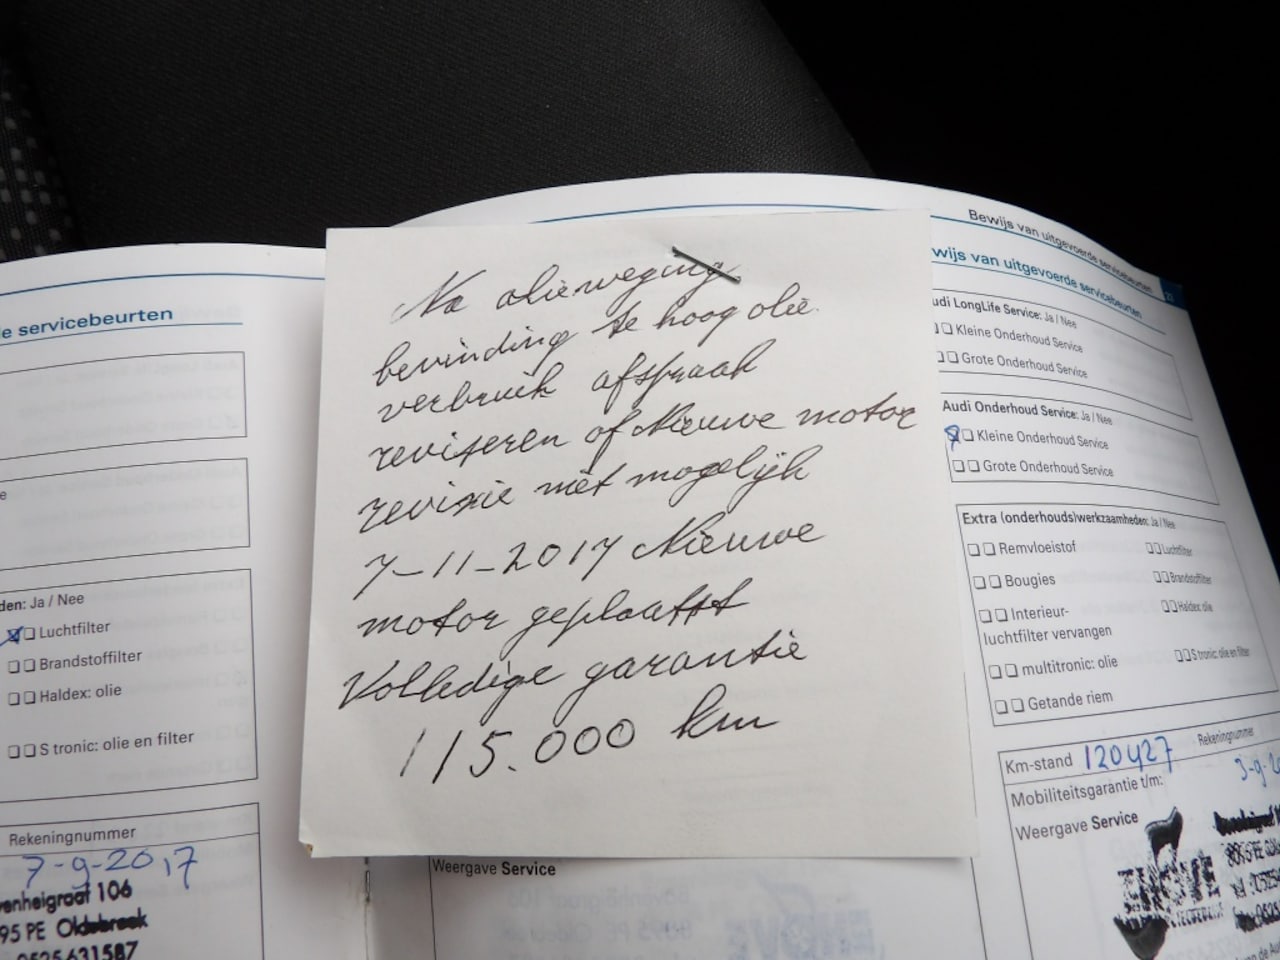 e servicebeurten
den: Ja / Nee
Luchtfilter
Brandstoffilter
Haldex: olie
S tronic: olie en filter
Rekeningnummer
7-9-2017
venheigraaf 106
95 PE Oldebroek
0525631587
Na olieweging
bevinding te hoog olie
verbruik afspraak
reviseren of Nieuwe motor
revisie niet mogelijk
7-11-2017 Nieuwe
motor geplaatst
Volledige garantie
115.000 km
Weergave Service
Bewijs van uitgevoerde servicebeurten
23
wijs van uitgevoerde servicebeurten
udi LongLife Service: Ja / Nee
Kleine Onderhoud Service
Grote Onderhoud Service
Audi Onderhoud Service: Ja / Nee
Kleine Onderhoud Service
Grote Onderhoud Service
Extra (onderhouds)werkzaamheden: Ja / Nee
Remvloeistof
Luchtfilter
Bougies
Brandstoffilter
Interieur-
luchtfilter vervangen
Haldex: olie
multitronic: olie
S tronic: olie en filter
Getande riem
Km-stand 120427
Rekeningnummer
3-9-20
Mobiliteitsgarantie t/m:
Weergave Service